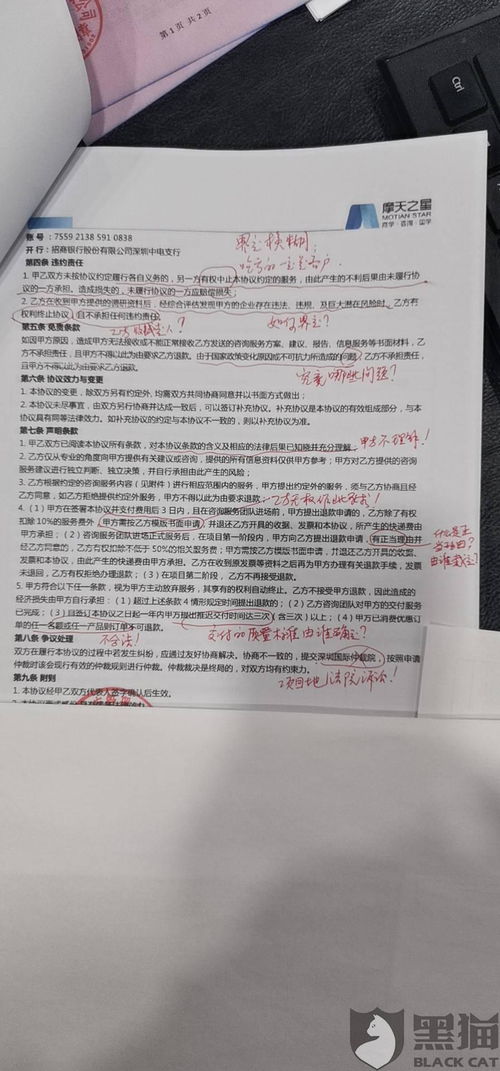 第1页 共2页
Ctrl
摩天之星
MOTIAN STAR
商学·咨询·留学
账 号：7559 2138 591 0838
开 行：招商银行股份有限公司深圳中电支行
界定模糊；
吃亏的一定是客户.
第四条 违约责任
1. 甲乙双方未按协议约定履行各自义务的，另一方有权中止本协议约定的服务，由此产生的不利后果由未履行协
议的一方承担，造成损失的，未履行协议的一方应赔偿损失；
2. 乙方在收到甲方提供的调研资料后，经综合评估发现甲方的企业存在违法、违规、及巨大潜在风险时，乙方有
权利终止协议，且不承担任何违约责任。
如何界定？
第五条 免责条款
如因甲方原因，造成甲方无法接收或不能正常接收乙方发送的咨询服务方案、建议、报告、信息服务等书面材料，乙
方不承担责任，且甲方不得以此为由要求乙方退款。由于国家政策变化原因或不可抗力所造成的问题，乙方不承担责任，
且甲方不得以此为由要求乙方退款。
究竟哪些问题？
第六条 协议效力与变更
1. 本协议的变更，除双方另有约定外，均需双方共同协商同意并以书面方式做出；
2. 本协议未尽事宜，由双方另行协商并达成一致后，可以签订补充协议。补充协议是本协议的有效组成部分，与本协
议具有同等法律效力。如补充协议的约定与本协议不一致的，则以补充协议为准。
第七条 声明条款
1. 甲乙双方已阅读本协议所有条款，对本协议条款的含义及相应的法律后果已知晓并充分理解；
甲方不理解！
2. 乙方仅从专业的角度向甲方提供有关建议或咨询，提供的所有信息资料仅供甲方参考；甲方对乙方提供的咨询
服务建议进行独立判断、独立决策，并自行承担由此产生的风险；
3. 乙方根据约定的咨询服务内容（见附件）进行相应范围内的服务，甲方提出约定外的服务，须与乙方协商且经
乙方同意，如乙方拒绝提供约定外服务，甲方不得以此为由要求退款；
4.（1）甲方在签署本协议并支付费用后 3 日内，且在咨询服务团队进场前，甲方提出退款申请的，乙方除了有权
扣除 10%的服务费外，甲方需按乙方模版书面申请，并退还乙方开具的收据、发票和本协议，所产生的快递费由
甲方承担；（2）咨询服务团队进场正式服务后，在项目第一阶段内，甲方向乙方提出退款申请，有正当理由并
经乙方同意的，乙方有权扣除不低于 50%的相关服务费；甲方需按乙方模版书面申请，并退还乙方开具的收据、
发票和本协议，由此产生的快递费由甲方承担。乙方在收到原发票等资料之后再为甲方办理有关退款手续，发票
未退回，乙方有权拒绝办理退款；（3）在项目第二阶段，乙方不再接受退款。
什么是正
当理由？
5. 甲方符合以下任一条款，视为甲方主动放弃服务，其享有的权利自动终止。乙方不接受甲方退款，因此造成的
经济损失由甲方自行承担：（1）超过上述条款 4 情形规定时间提出退款的；（2）乙方咨询团队对甲方的交付服务
已完成；（3）自签订本协议之日起一年内甲方提出推迟交付时间达三次（含三次）以上；（4）甲方已消费优惠订
单的任一名额或任一产品则订单不可退款。
不合法！
交付的质量标准由谁确定？
第八条 争议处理
双方在履行本协议的过程中若发生纠纷，应通过友好协商解决。协商不一致的，提交深圳国际仲裁院，按照申请
仲裁时该会现行有效的仲裁规则进行仲裁。仲裁裁决是终局的，对双方均有约束力。
项目地法院诉讼！
第九条 附则
1. 本协议经甲乙双方代表人签字确认后生效。
黑猫
BLACK CAT